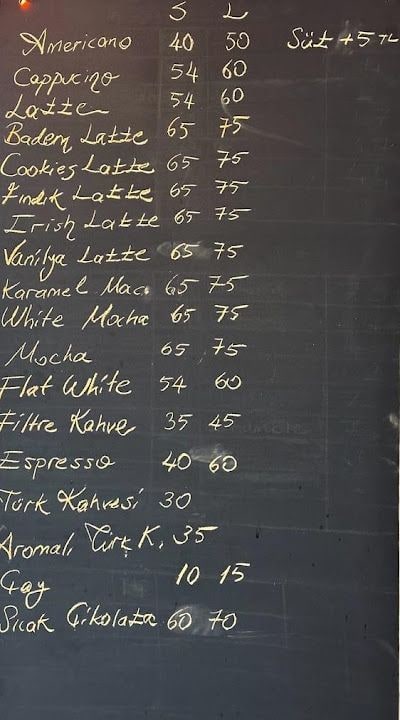 S L
Americano 40 50 Süt +5 TL
Cappucino 54 60
Latte 54 60
Badem Latte 65 75
Cookies Latte 65 75
Fındık Latte 65 75
Irish Latte 65 75
Vanilya Latte 65 75
Karamel Mac. 65 75
White Mocha 65 75
Mocha 65 75
Flat White 54 60
Filtre Kahve 35 45
Espresso 40 60
Türk Kahvesi 30
Aromalı Türk K. 35
Çay 10 15
Sıcak Çikolata 60 70